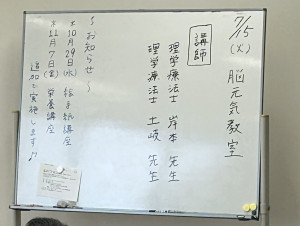 7/15(火) 脳元気教室
講師
理学療法士 岸本 先生
理学療法士 土岐 先生
～お知らせ～
*10月29日(水) 絵手紙講座
*11月7日(金) 栄養講座
追加で実施します♪